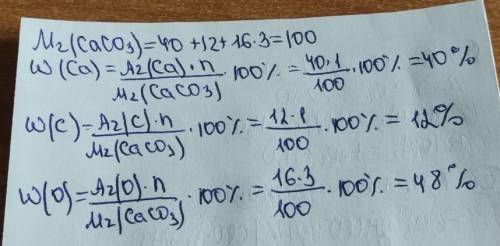 Mr(CaCO3)=40+12+16·3=100
W(Ca)=Ar(Ca)·n/Mr(CaCO3)·100%=40·1/100·100%=40%
W(C)=Ar(C)·n/Mr(CaCO3)·100%=12·1/100·100%=12%
W(O)=Ar(O)·n/Mr(CaCO3)·100%=16·3/100·100%=48%